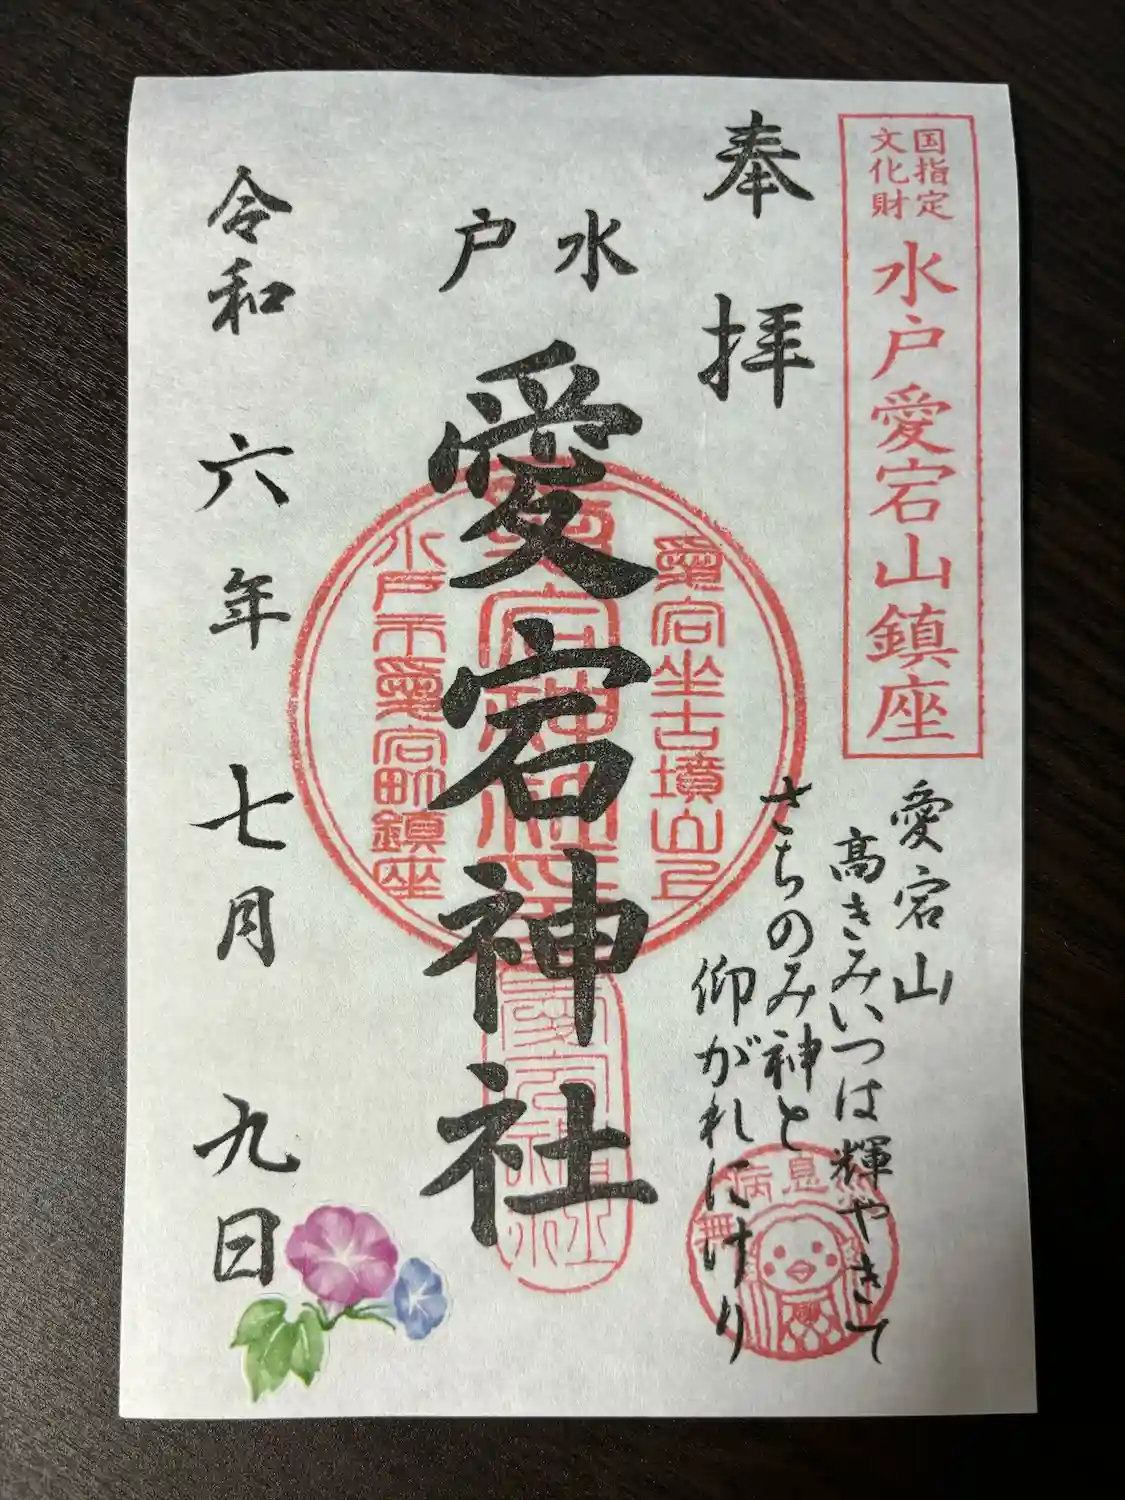 国指定
文化財
水戸愛宕山鎮座
奉拝
愛宕山
高きみいつは輝やきて
さちのみ神と
仰がれにけり
水戸
愛宕神社
愛宕坐古墳山上
水戸市愛宕町鎮座
無病息
令和六年七月九日